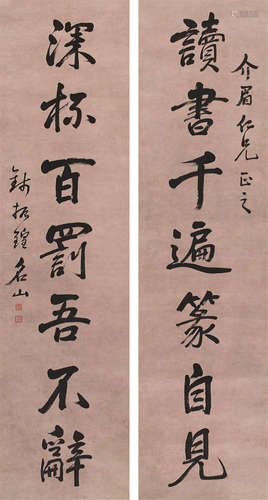 介眉仁兄正之
讀書千遍篆自見
深杯百罰吾不辭
錢振鍠名山